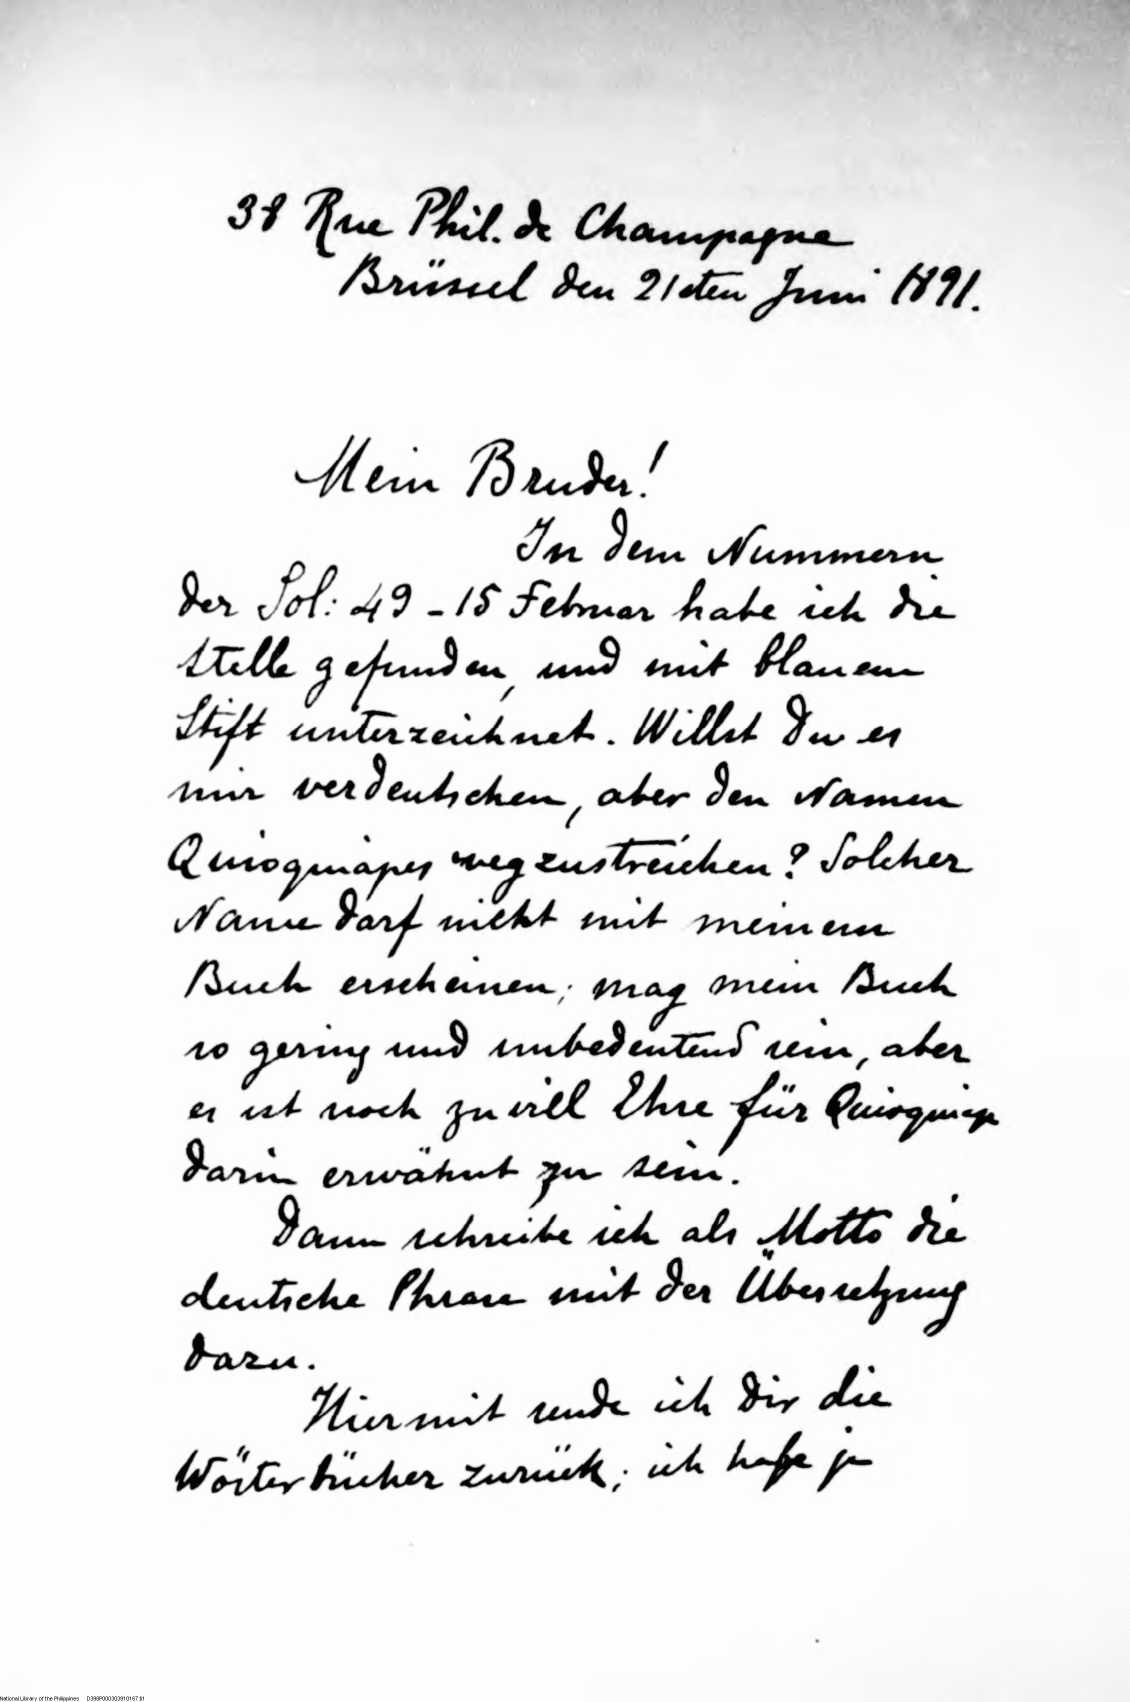 38 Rue Phil. de Champagne
Brüssel den 21sten Juni 1891.
Mein Bruder!
In dem Nummern
der Sol: 49 - 15 Februar habe ich die
Stelle gefunden, und mit blauem
Stift unterzeichnet. Willst Du es
mir verdeutschen, aber den Namen
Quioquiapes wegzustreichen? Solcher
Name darf nicht mit meinem
Buch erscheinen; mag mein Buch
so gering und unbedeutend sein, aber
es ist noch zu viell Ehre für Quioquiap
darin erwähnt zu sein.
Dann schreibe ich als Motto die
deutsche Phrase mit der Übersetzung
dazu.
Hiermit sende ich Dir die
Wörterbücher zurück; ich habe ja
National Library of the Philippines